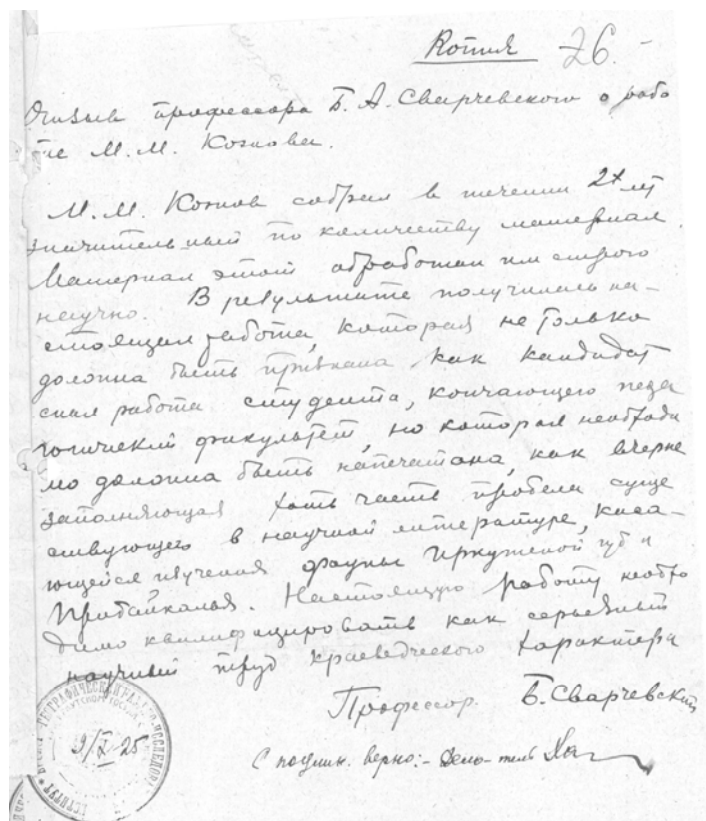 Копия 26.
Отзыв профессора Б. А. Сварчевского о рабо
те М. М. Кожова.
М. М. Кожов собрал в течении 2х лет
значительный по количеству материал.
Материал этот обработан им строго
научно. В результате получилась на-
стоящая работа, которая не только
должна быть признана как кандидат
ская работа студента, кончающего педа
гогический факультет, но которая необходи
мо должна быть напечатана, как вчерне
заполняющая хоть часть пробела суще
ствующего в научной литературе, каса-
ющейся изучения фауны Иркутской губ и
Прибайкалья. Настоящую работу необхо
димо квалифицировать как серьезный
научный труд краеведческого характера
Профессор Б. Сварчевский
9/X 25
С подлин. верно:- Дело-тель